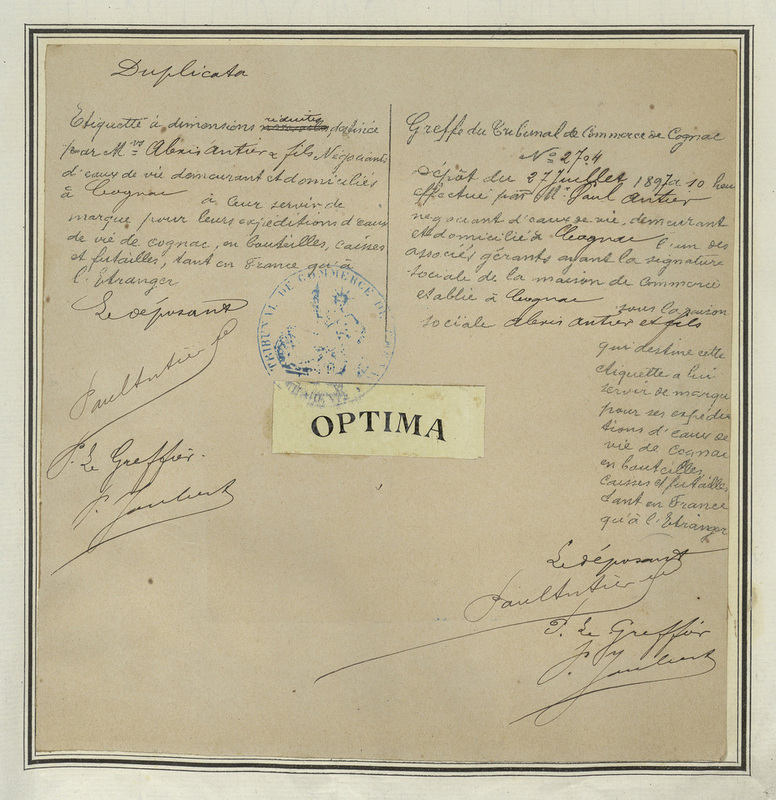 Duplicata
Etiquette à dimensions réduites destinée
par Mrs Alexis Antier & fils Négociants
d'eaux de vie demeurant et domiciliés
à Cognac à leur servir de
marque pour leurs expéditions d'eaux
de vie de cognac, en bouteilles, caisses
et futailles, tant en France qu'à
l'Etranger
Le déposant
Paul Antier
P. Le Greffier.
P. Joubert
Greffe du Tribunal de Commerce de Cognac
No 2704
Dépôt du 27 Juillet 1897 à 10 heu
effectué par Mr Paul Antier
négociant d'eaux de vie, demeurant
et domicilié à Cognac l'un des
associés gérants ayant la signature
sociale de la maison de commerce
etablie à Cognac sous la raison
sociale Alexis Antier et fils
qui destine cette
etiquette a lui
servir de marque
pour ses expédi
tions d'eaux de
vie de cognac
en bouteilles
caisses et futailles
tant en France
qu'à l'Etranger
Le déposant
Paul Antier
P. Le Greffier
Joubert
TRIBUNAL DE COMMERCE DE
OPTIMA